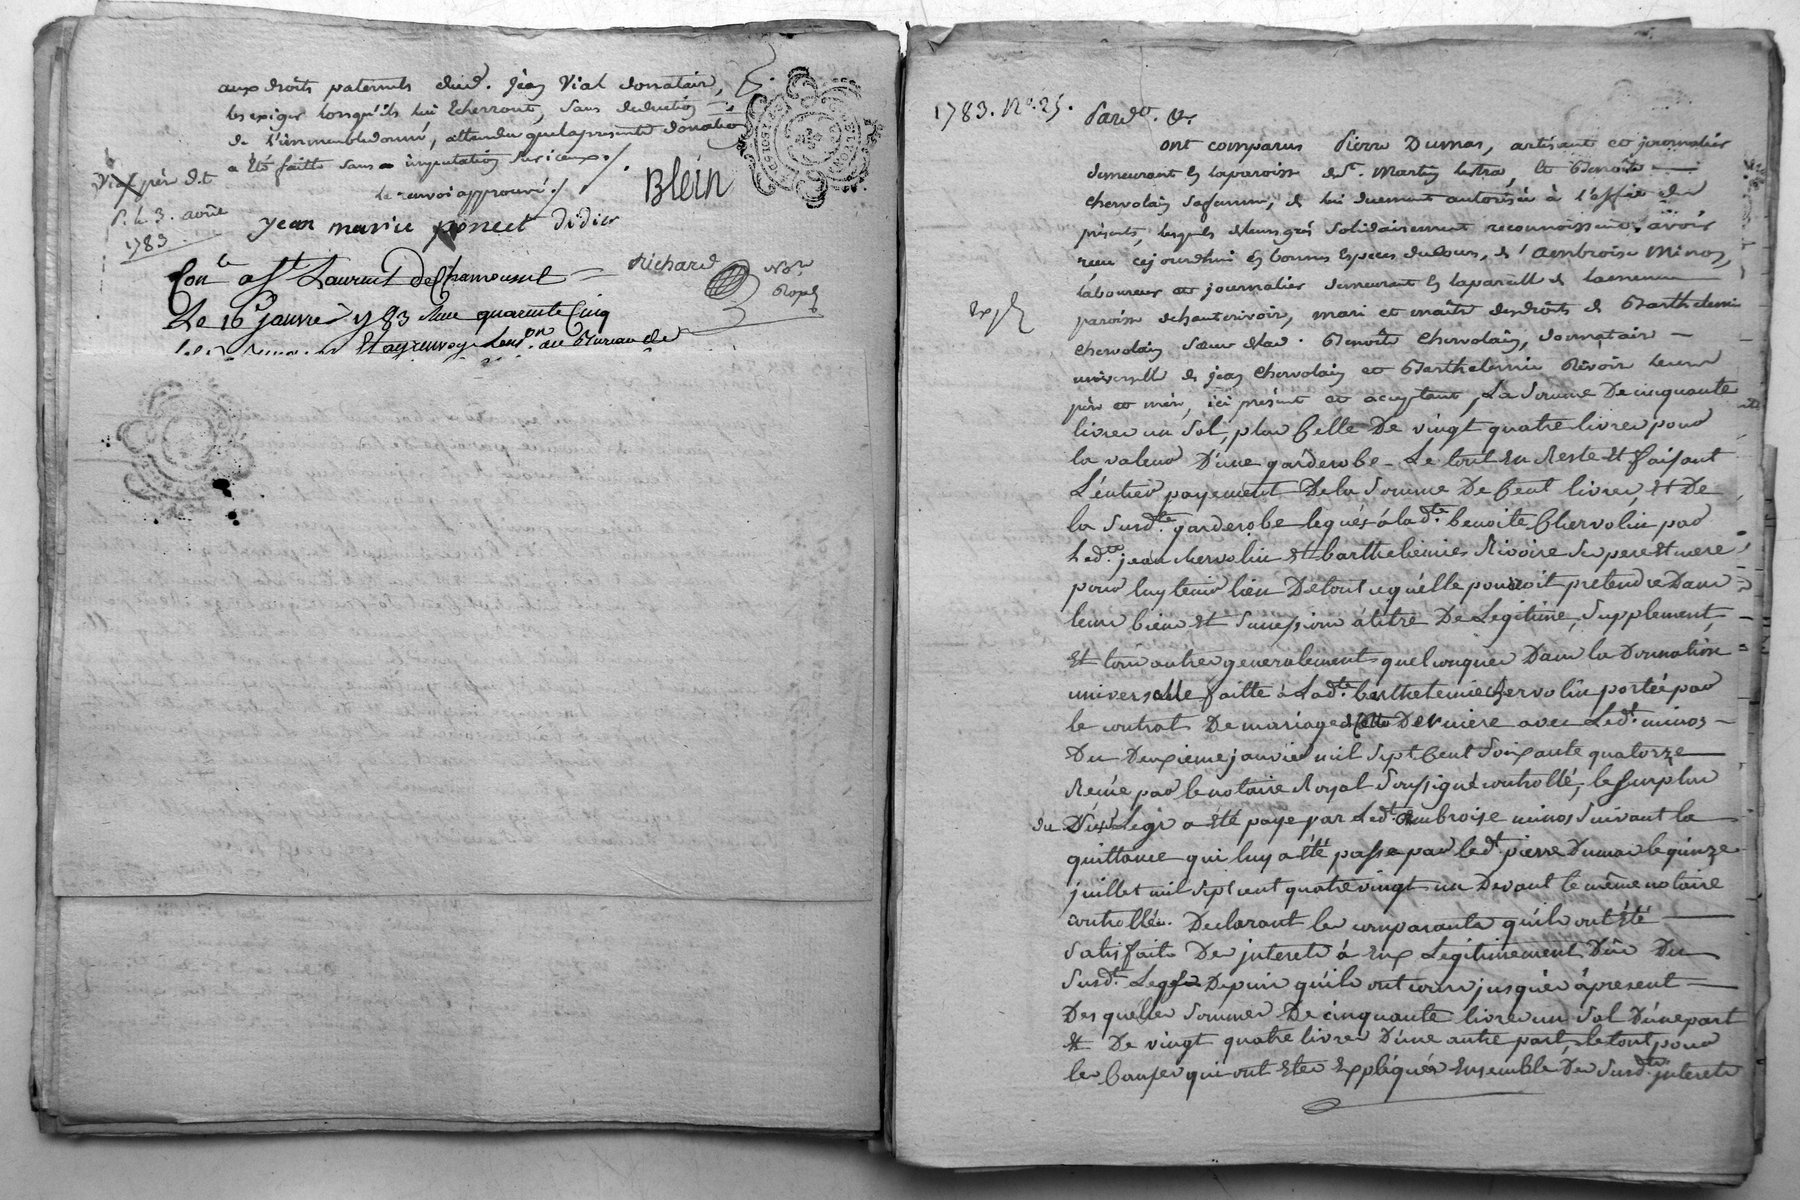 aux droits paternels dud. jean Vial donatair,
les exiger lorsqu'ils lui Echerront, sans deduction
de l'immeuble donné, attendu que la presente donation
a été faitte sans imputation sur iceux./.
le renvoi approuvé./.
Vial père d.t
P. L. 3. aoüt
1783
Blein
jean marie poncet didier
Richard Nore Royal
Con.le a St Laurent De Chamousset
Le 16 janvier 1783 Reçu quarente Cinq
Et a renvoyé Lens.on au Bureau de
1783. No. 25.
Pardt. &c
ont comparus Pierre Dumas, artisant et journalier
demeurant en la paroisse de St. Martin lestra, et Benoite
Chervolin sa femme, de lui duement autorisée à l'effet des
présents, lesquels de leurs grés solidairement reconnoissent avoir
reçu cejourdhui en bonnes Especes du cours, de Ambroise Minos,
laboureur et journalier demeurant en la parcelle de
paroisse de hauterivoir, mari et maitre des droits de Barthelemie
Chervolin sœur de lad. Benoite Chervolin, donnatair
universelle de jean Chervolin et Barthelemie Rivoir leurs
père et mère, ici présent et acceptant, La somme De cinquante
livres un sol, plus Celle De vingt quatre livres pour
la valeur D'une garderobe - Le tout En Reste Et faisant
L'entier payement De la somme De Cent livres, Et De
la susdte. garderobe legués à la dte. benoite Chervolin par
Ledt. jean chervolin Et barthelemie Rivoire ses pere Et mere
pour luy tenir lieu De tout ce qu'elle pouvoit pretendre Dans
leurs biens Et succession à titre De Legitime, supplement,
Et tous autres generalement quelconques Dans la Donnation
universelle faitte à La dte. barthelemie Chervolin portée par
le contrat De mariage de cette Derniere avec Ledt. minos
Du Deuxieme janvier mil sept Cent soixante quatorze
Reçue par le notaire Royal soussigné controllé, le surplus
du Legs a été payé par Ledt. ambroise minos suivant la
quittance qui luy a Eté passée par ledt. pierre Dumas le quinze
juillet mil sept cent quatre vingt un Devant le même notaire
controllée. Declarant les comparants qu'ils ont Eté
satisfaits De interets à Eux Legitimement Dûs Du
susdt. Legs Depuis qu'ils ont courus jusques à present
Des quelles sommes De cinquante livres un sol D'une part
Et De vingt quatre livres D'une autre part, le tout pour
les Causes qui ont Eter Expliqués Ensemble Des susdts. interets
Exp.